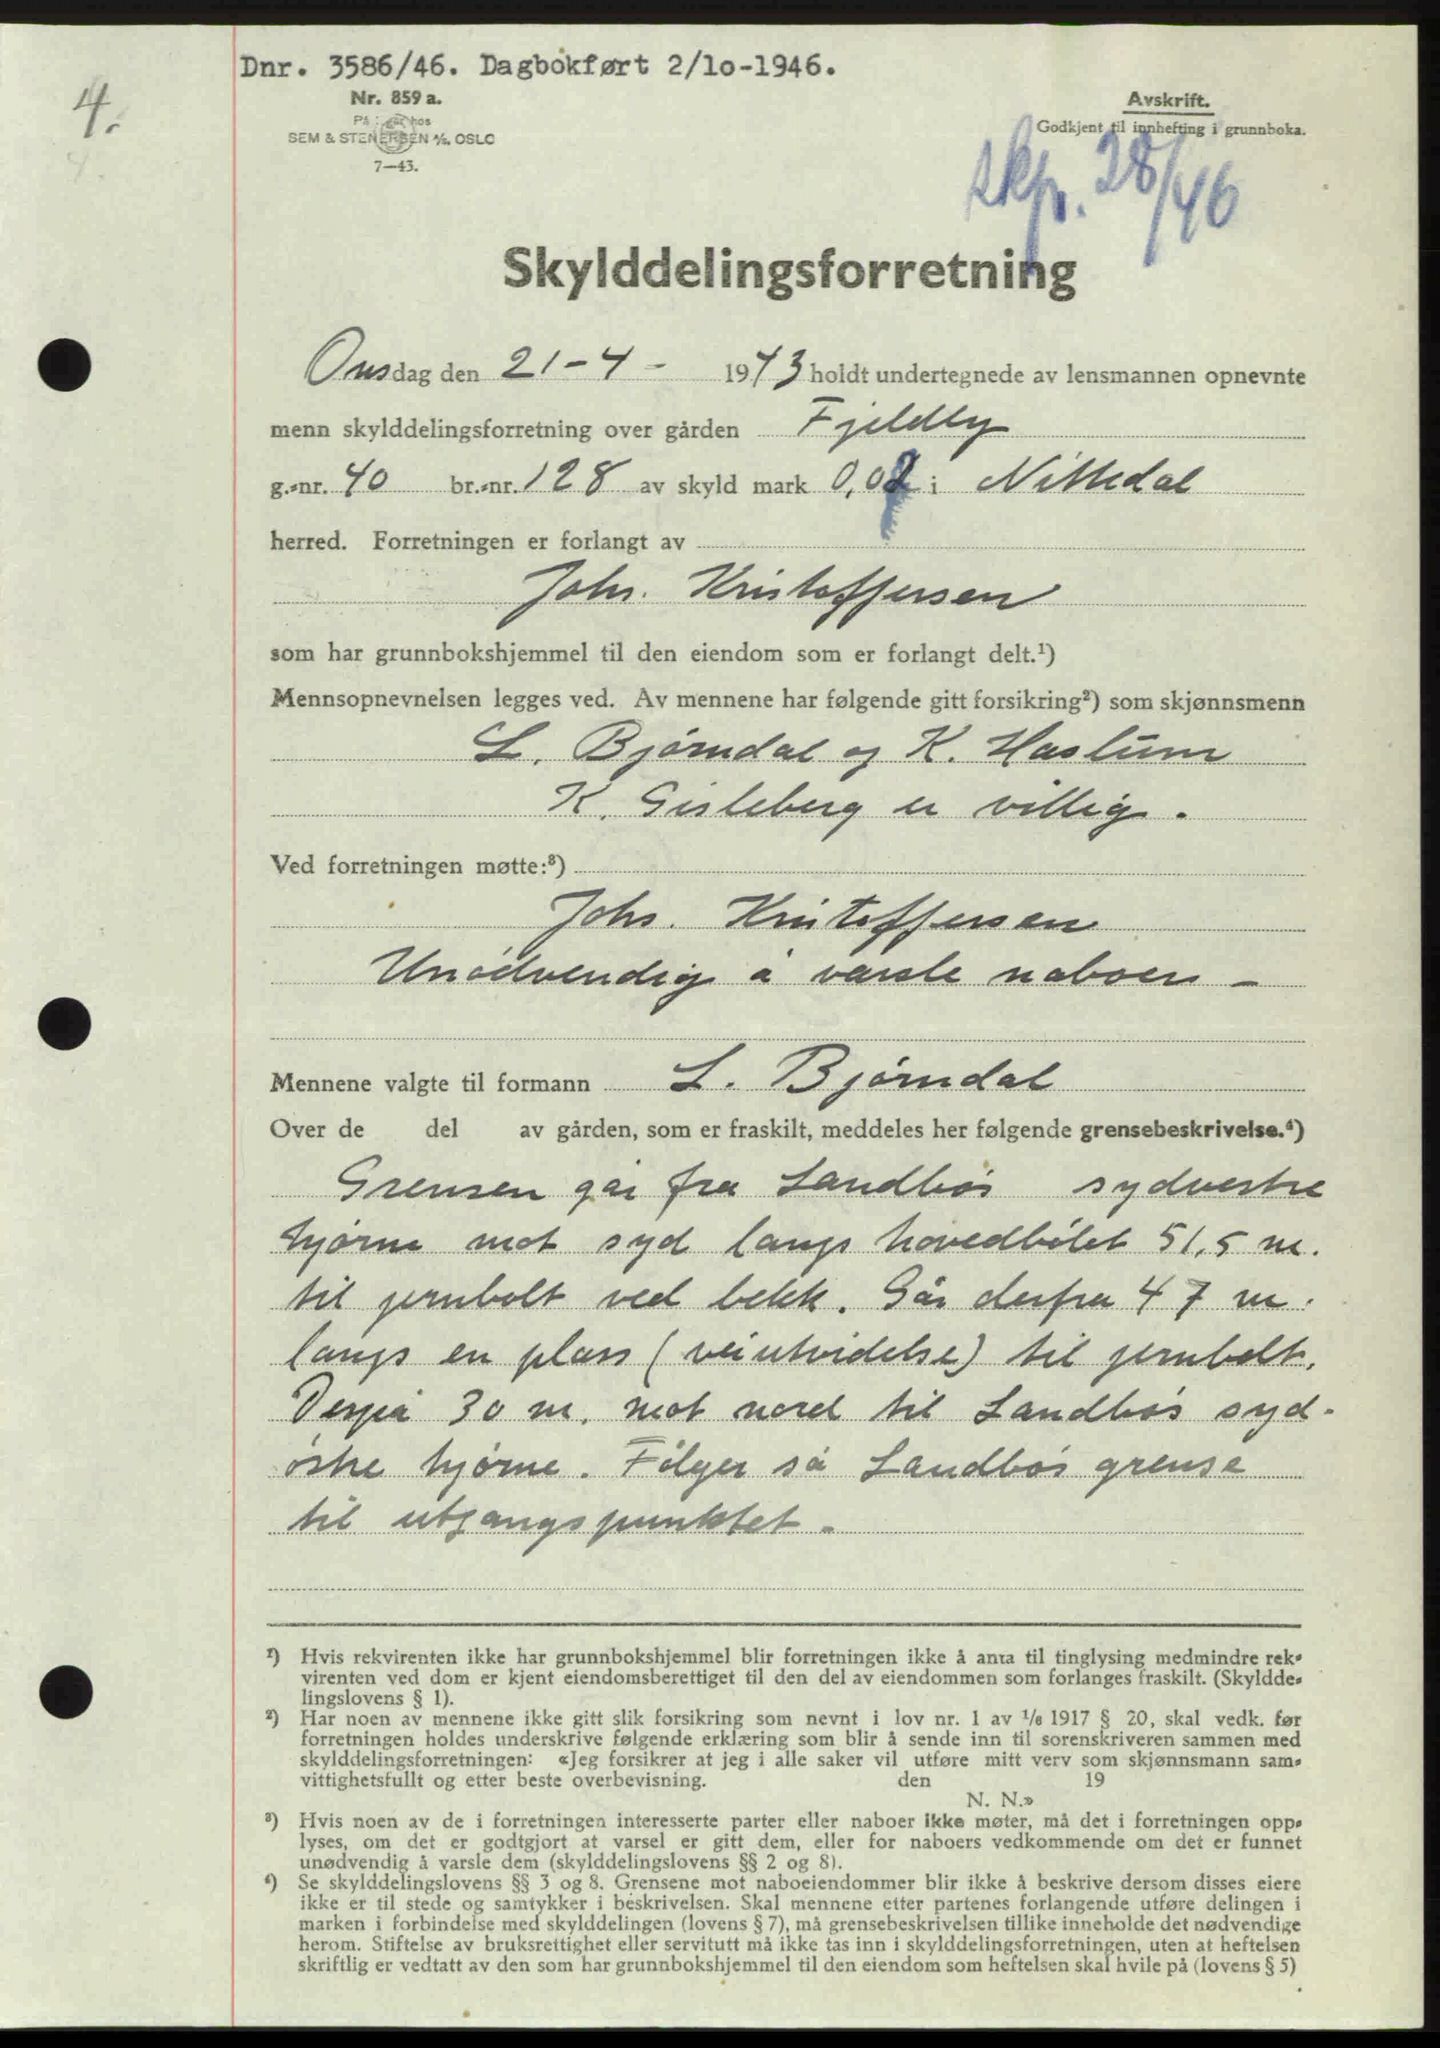 Dnr. 3586/46. Dagbokført 2/10-1946.
4.
Nr. 859 a.
SEM & STENERSEN A/S. OSLO
7—43.
Avskrift.
Godkjent til innhefting i grunnboka.
skp. 28/46
Skylddelingsforretning
Onsdag den 21-4- 1943 holdt undertegnede av lensmannen opnevnte
menn skylddelingsforretning over gården Fjeldly
g.-nr. 40 br.-nr. 128 av skyld mark 0,02 i Nittedal
herred. Forretningen er forlangt av
Johs. Kristoffersen
som har grunnbokshjemmel til den eiendom som er forlangt delt.¹)
Mennsopnevnelsen legges ved. Av mennene har følgende gitt forsikring²) som skjønnsmenn
L. Bjørndal og K. Haslum
K. Gisleberg er villig.
Ved forretningen møtte:³)
Johs. Kristoffersen
Unødvendig å varsle naboer -
Mennene valgte til formann L. Bjørndal
Over de del av gården, som er fraskilt, meddeles her følgende grensebeskrivelse.⁴)
Grensen går fra Landbøs sydvestre
hjørne mot syd langs hovedbølet 51,5 m.
til jernbolt ved bekk. Går derfra 47 m.
langs en plass (veiutvidelse) til jernbolt.
30 m. mot nord til Landbøs syd-
østre hjørne. Følger så Landbøs grense
til utgangspunktet.
¹) Hvis rekvirenten ikke har grunnbokshjemmel blir forretningen ikke å anta til tinglysing medmindre rek-
virenten ved dom er kjent eiendomsberettiget til den del av eiendommen som forlanges fraskilt. (Skyldde-
lingslovens § 1).
²) Har noen av mennene ikke gitt slik forsikring som nevnt i lov nr. 1 av 1/6 1917 § 20, skal vedk. før
forretningen holdes underskrive følgende erklæring som blir å sende inn til sorenskriveren sammen med
skylddelingsforretningen: «Jeg forsikrer at jeg i alle saker vil utføre mitt verv som skjønnsmann sam-
vittighetsfullt og etter beste overbevisning. den 19
N. N.»
³) Hvis noen av de i forretningen interesserte parter eller naboer ikke møter, må det i forretningen opp-
lyses, om det er godtgjort at varsel er gitt dem, eller for naboers vedkommende om det er funnet
unødvendig å varsle dem (skylddelingslovens §§ 2 og 8).
⁴) Se skylddelingslovens §§ 3 og 8. Grensene mot naboeiendommer blir ikke å beskrive dersom disses eiere
ikke er til stede og samtykker i beskrivelsen. Skal mennene etter partenes forlangende utføre delingen i
marken i forbindelse med skylddelingen (lovens § 7), må grensebeskrivelsen tillike inneholde det nødvendige
herom. Stiftelse av bruksrettighet eller servitutt må ikke tas inn i skylddelingsforretningen, uten at heftelsen
skriftlig er vedtatt av den som har grunnbokshjemmel til den eiendom som heftelsen skal hvile på (lovens § 5)